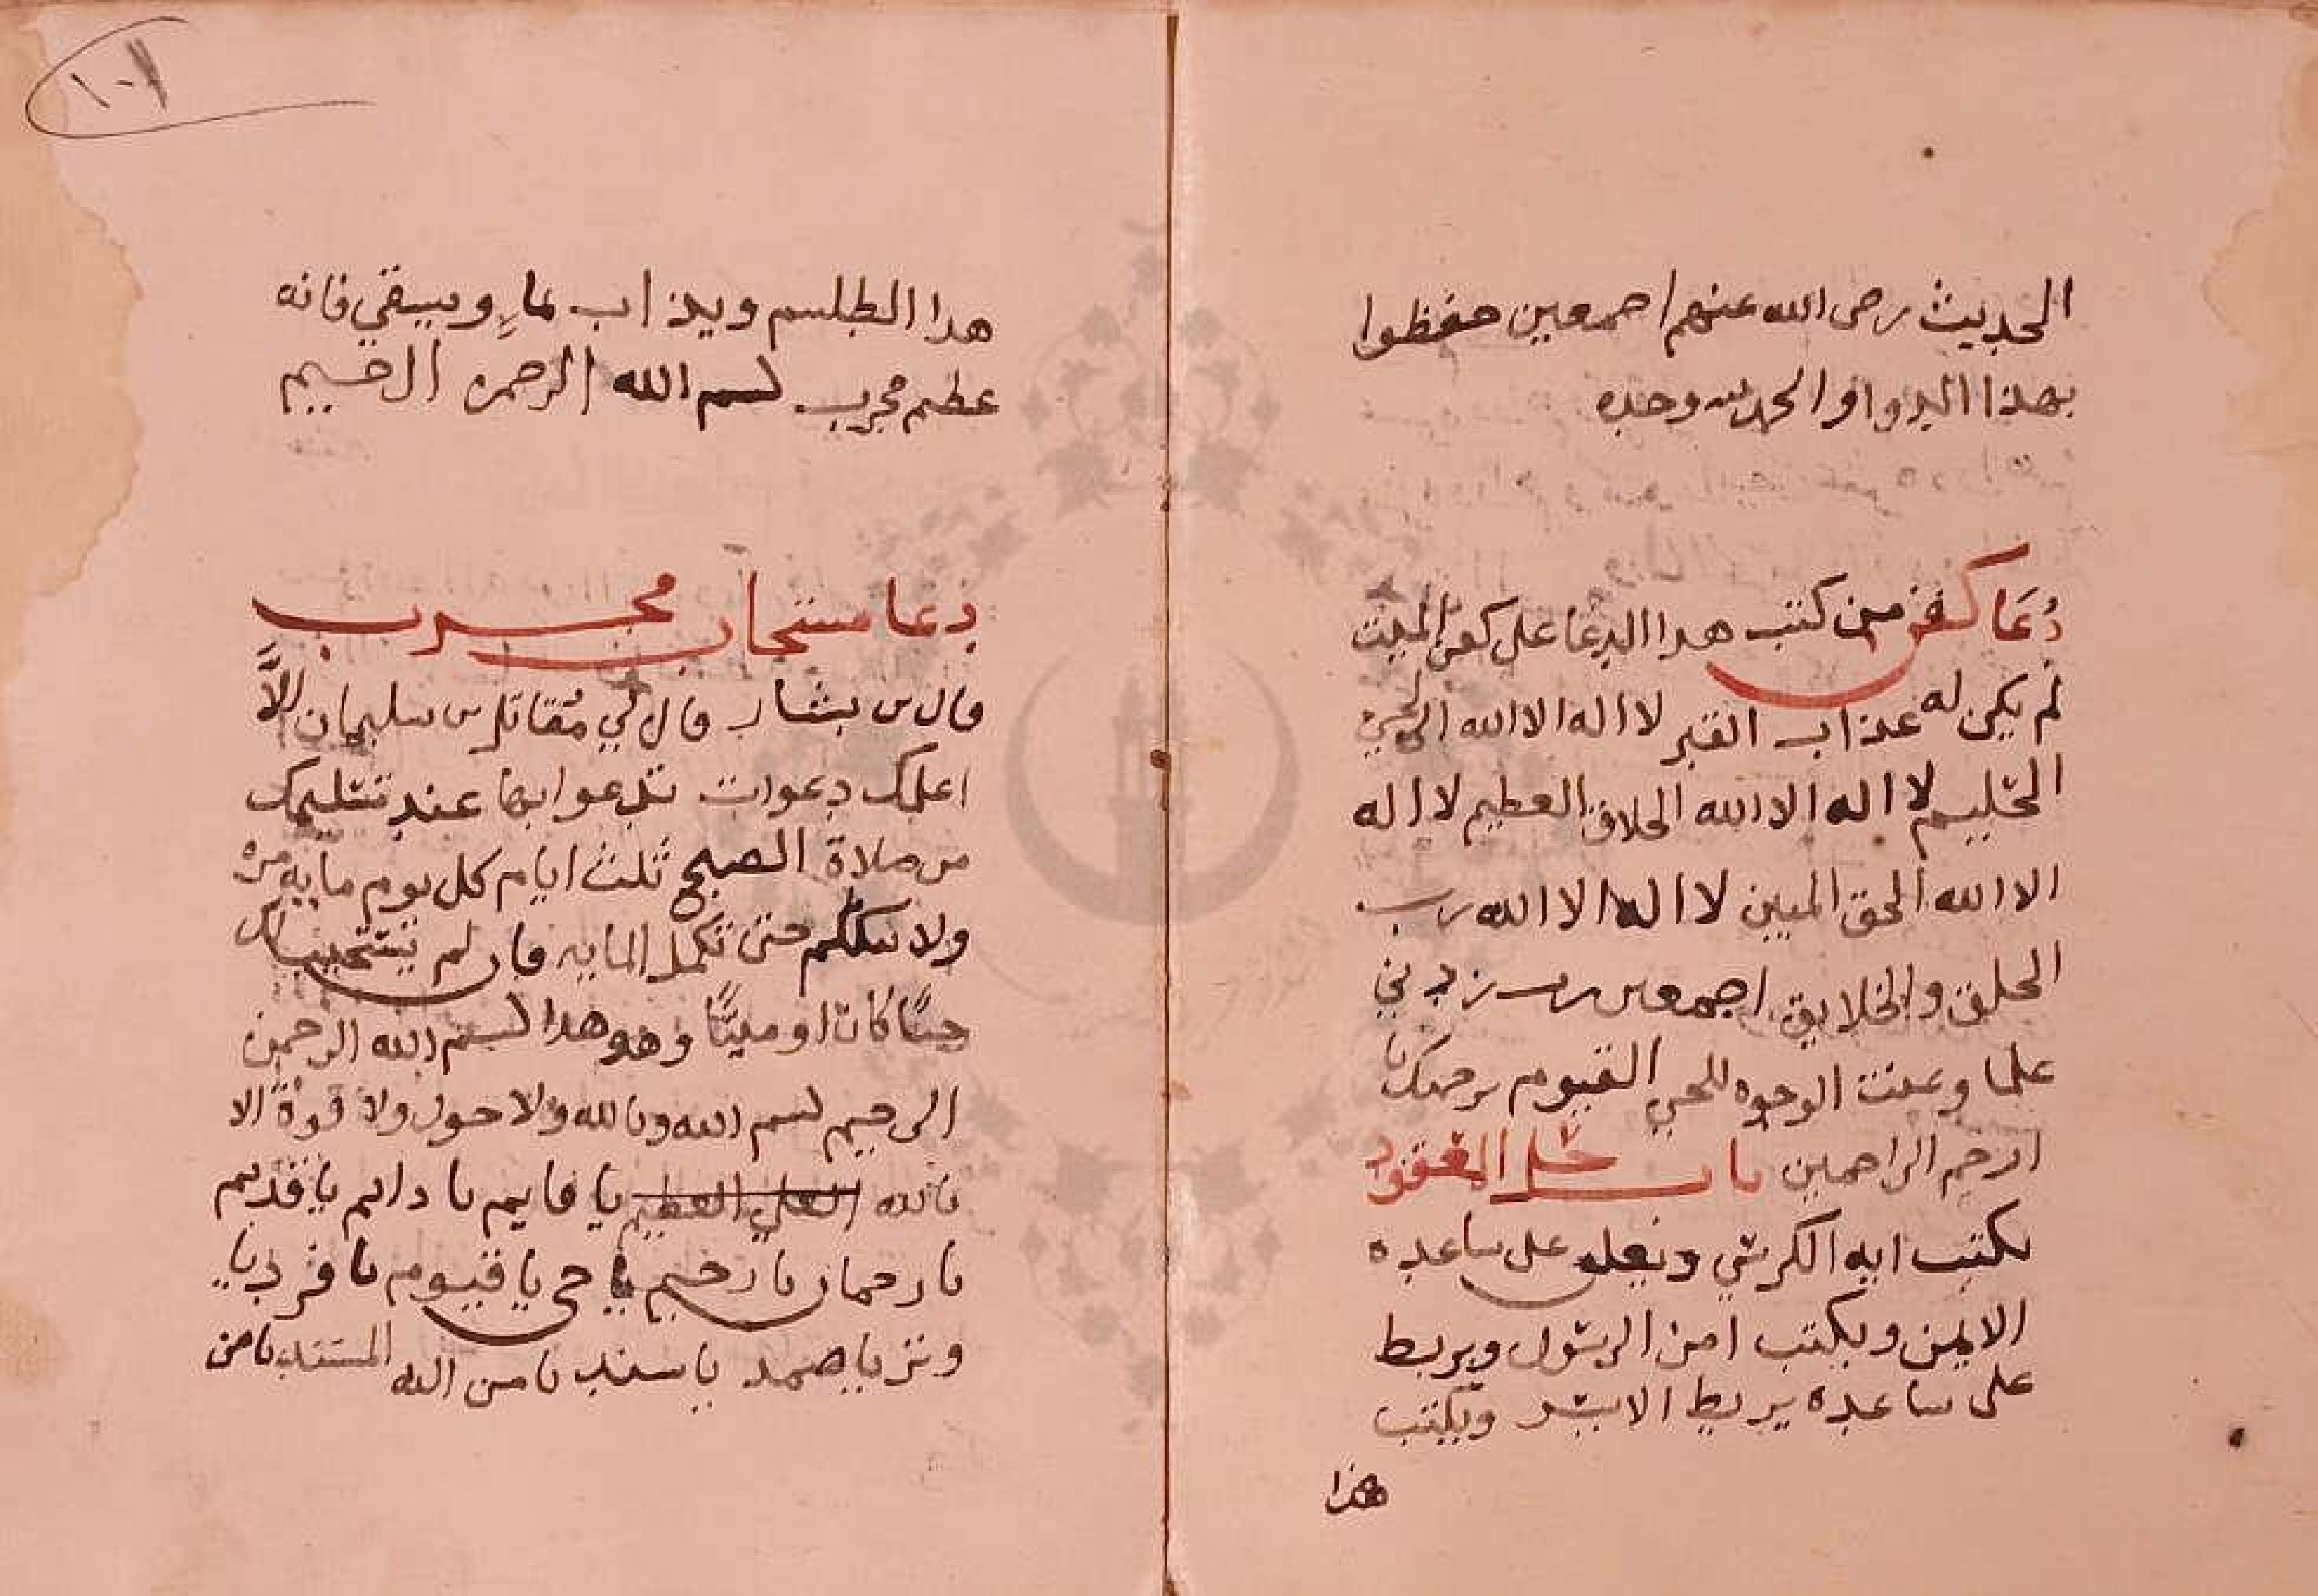 الحديث رضى الله عنهم اجمعين حفظوا
بهذا الدوا والحمد لله وحده
دُعَا كفن من كتب هدا الدعا على كفن الميت
لم يكن له عذاب القبر لا اله الا الله الحي
الحليم لا اله الا الله الخلاق العظيم لا اله
الا الله الحق المبين لا اله الا الله رب
الخلق والخلايق اجمعين رب زدني
علما وعنت الوجوه للحي القيوم برحمتك يا
ارحم الراحمين باب حل المعقود
يكتب ايه الكرسي ويعلق على ساعده
الايمن ويكتب امن الرسول ويربط
على ساعده يربط الايسر ويكتب
هذا
١٠٢
هدا الطلسم ويذاب بماءٍ ويسقي فانه
عظيم مجرب بسم الله الرحمن الرحيم
دعا مستجاب مجرب
قال بن بشار قال لي مُقاتل بن سليمان الاَّ
اعلمك دعوات تدعوا بها عند تسليمك
من صلاة الصبح ثلث ايام كل يوم مايه مره
ولا تتكلم حتى تكمل المايه فان لم يستجيب لك
حيًّا كان او ميتًا وهو هدا بسم الله الرحمن
الرحيم بسم الله وبالله ولا حول ولا قوة الا
بالله العلي العظيم يا قايم يا دايم يا قديم
يا رحمان يا رحيم يا حي يا قيوم يا فرد يا
وتر يا صمد يا سند يا من اليه المستند يا من